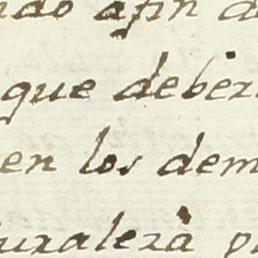 ndo afin d
que deber
en los dem
turaleza p